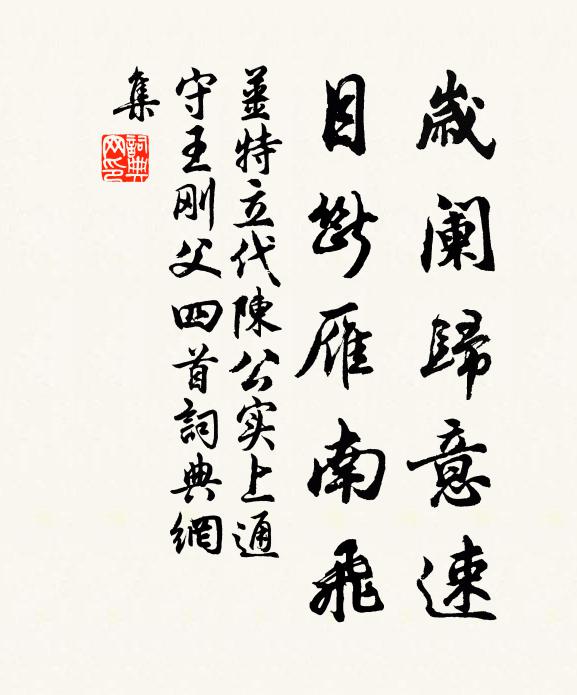 歲阑歸意速
目斷雁南飛
姜特立代陳公实上通
守王刚父四首詞典網
集
詞典
网印